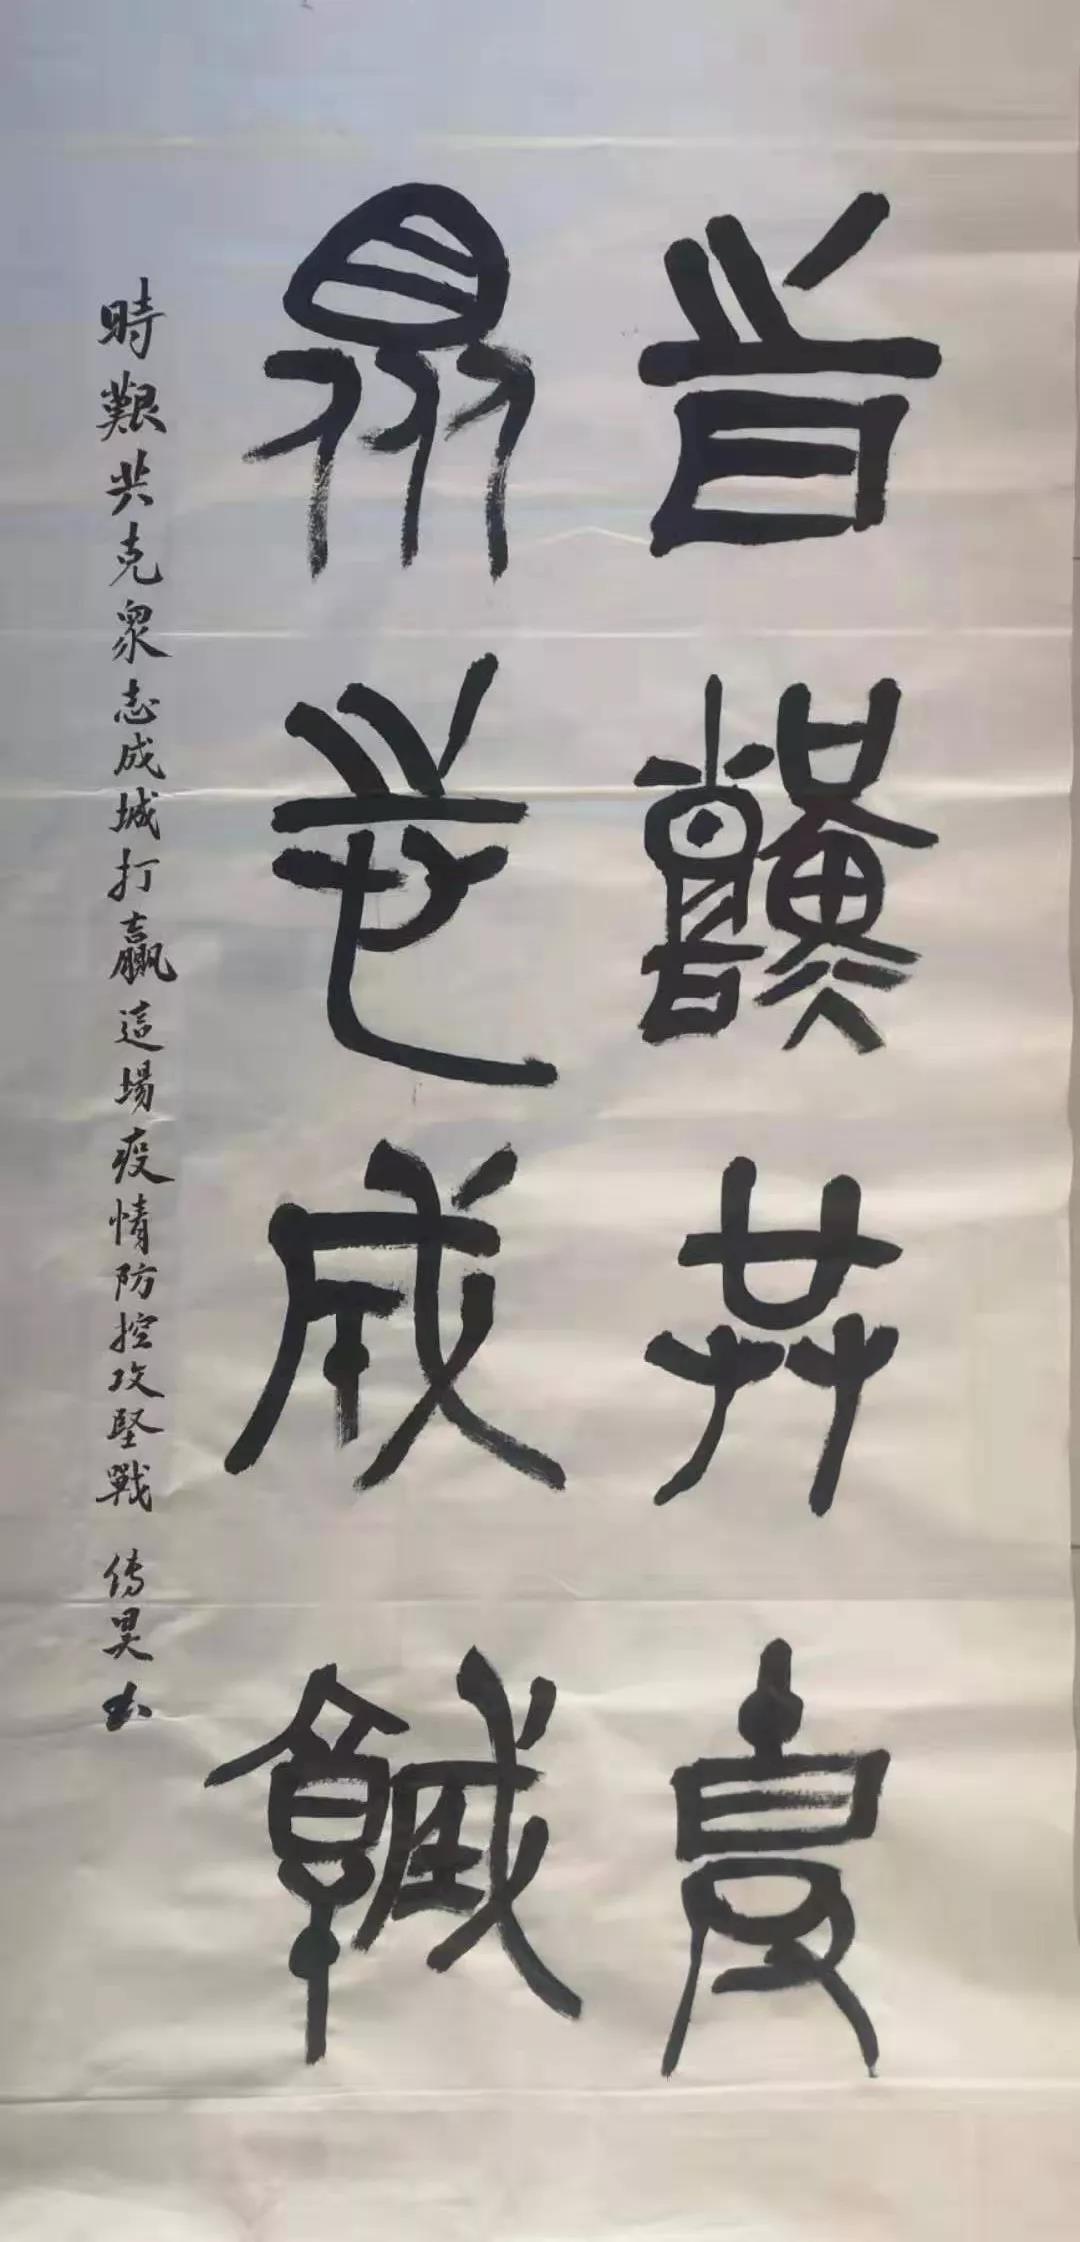 時艱共克
眾志成城
時艱共克眾志成城打贏這場疫情防控攻堅戰 傳昊书